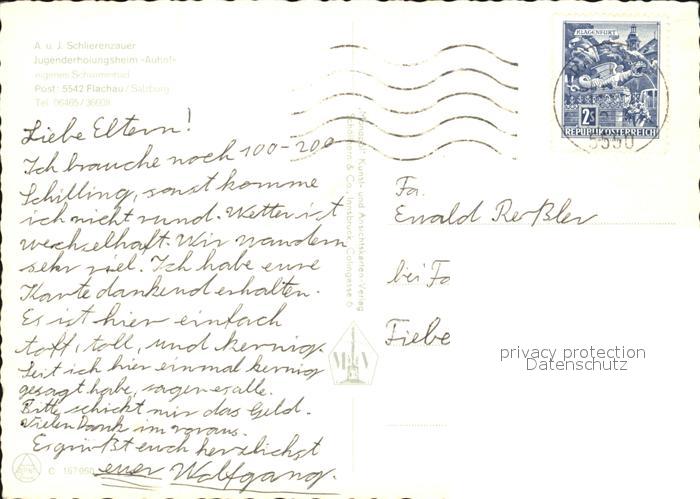 A. u. J. Schlierenzauer
Jugenderholungsheim »Auhof«
eigenes Schwimmbad
Post: 5542 Flachau / Salzburg
Tel. 06465/36609
Liebe Eltern!
Ich brauche noch 100-200
Schilling, sonst komme
ich nicht rund. Wetter ist
wechselhaft. Wir wandern
sehr viel. Ich habe eure
Karte dankend erhalten.
Es ist hier einfach
toff, toll, und kernig.
Seit ich hier einmal kernig
gesagt habe, sagen es alle.
Bitte schickt mir das Geld.
Vielen Dank im voraus.
Es grüßt euch herzlichst
euer Wolfgang.
C 167960
Kunst- und Ansichtskarten-Verlag
& Co., Innsbruck, Colingasse 6
KLAGENFURT
2S
REPUBLIK ÖSTERREICH
5550
Fa.
Ewald
bei Fa
Fiebe
privacy protection
Datenschutz